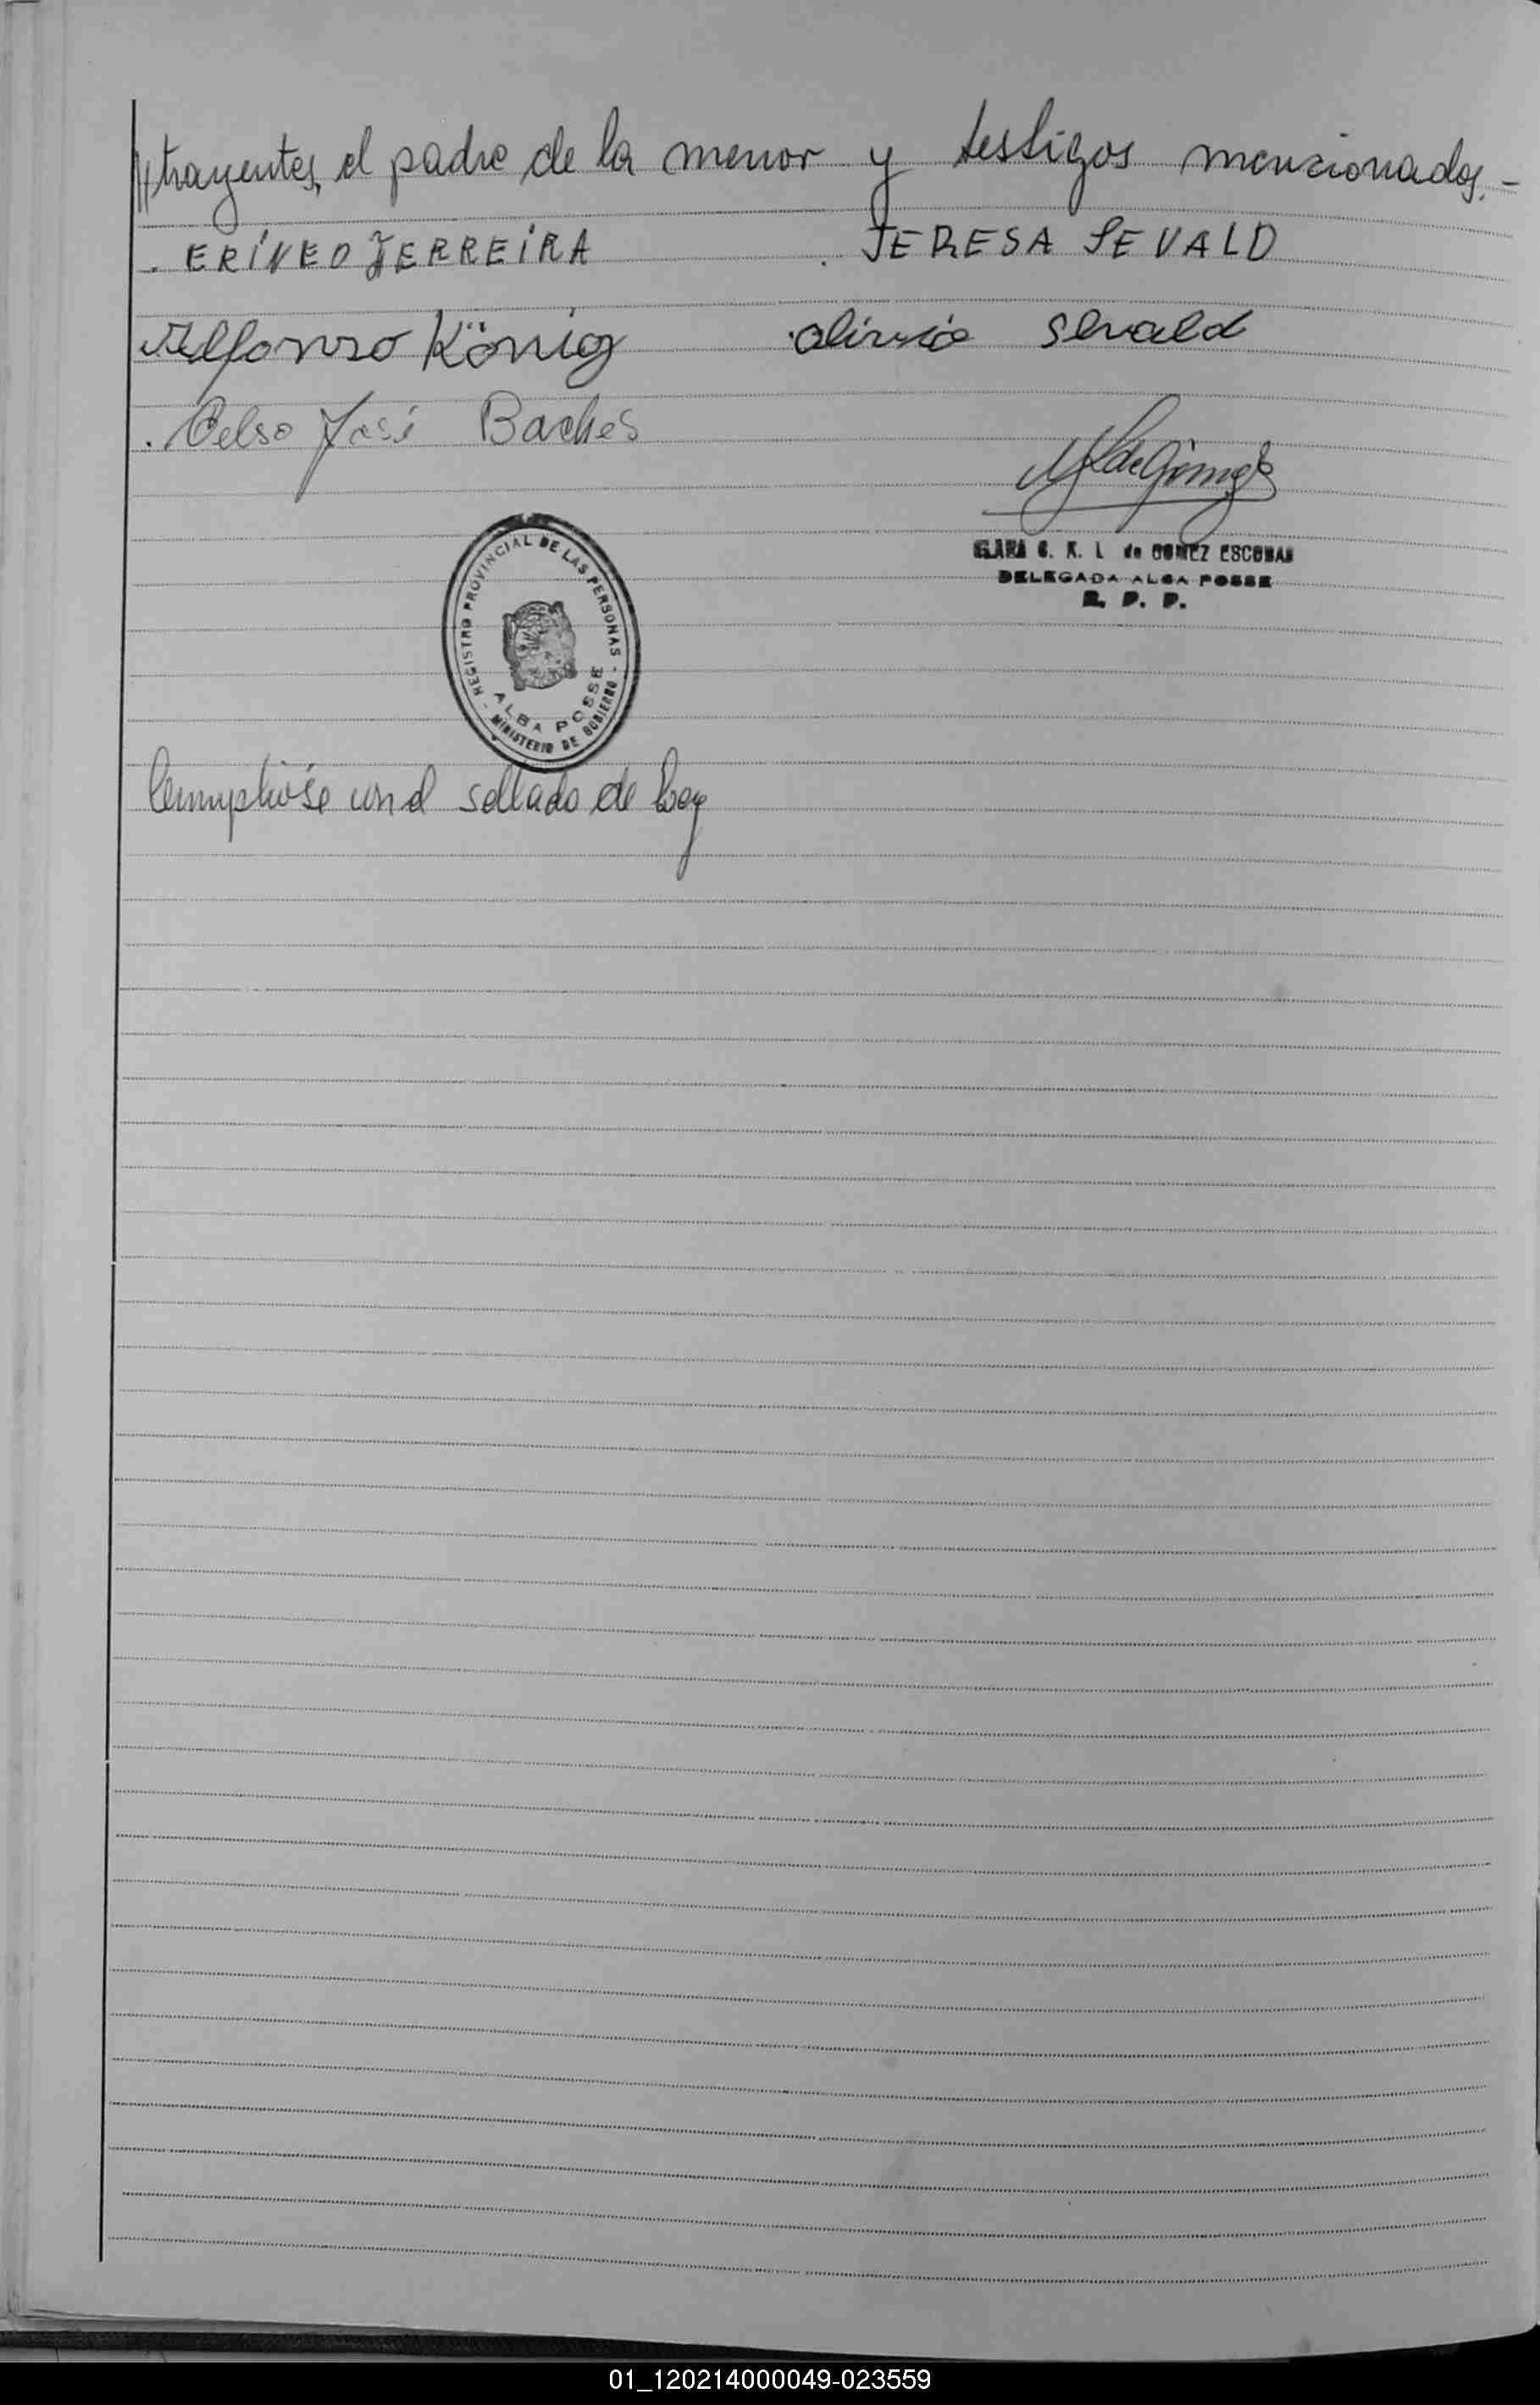 //trayentes, el padre de la menor y testigos mencionados.-
. ERÍNEO FERREÍRA . TERESA SEVALD
Alfonso König Olinda Sevald
. Celso José Backes
CLARA C. K. L de GOMEZ ESCOBAR
DELEGADA ALBA POSSE
R. P. P.
REGISTRO PROVINCIAL DE LAS PERSONAS - MINISTERIO DE GOBIERNO -
ALBA POSSE
Cumplióse con el sellado de Ley
01_120214000049-023559